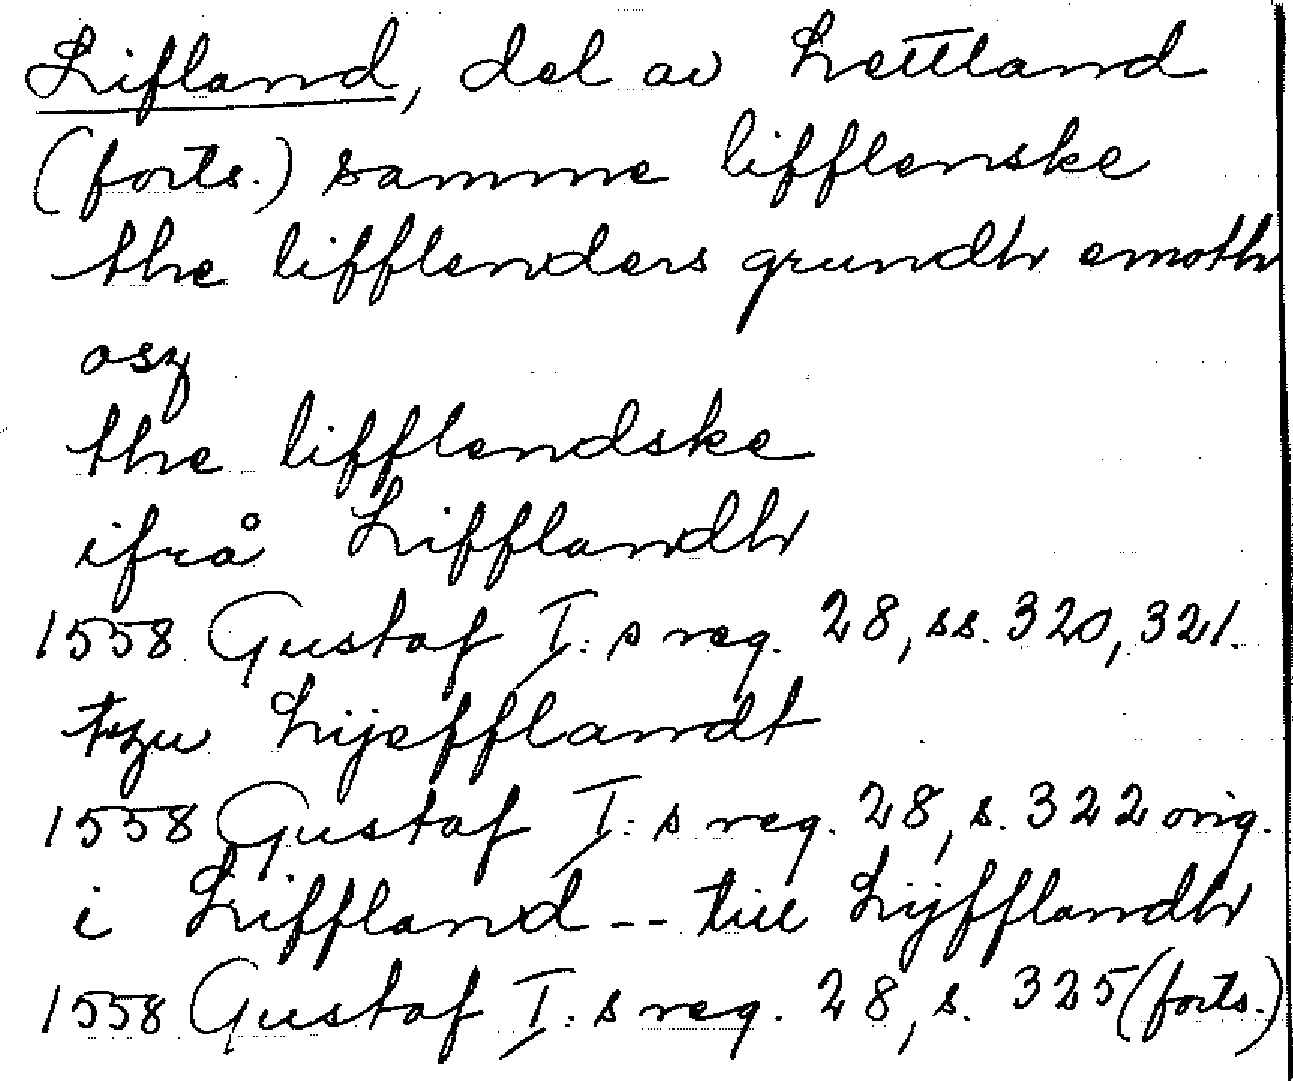 Lifland, del av Lettland
(forts.) samme lifflenske
the lifflenders grundh emoth
osz
the lifflendske
ifrå Lifflandh
1558 Gustaf I:s reg. 28, ss. 320, 321.
tzu Lijefflandt
1558 Gustaf I:s reg. 28, s. 322 orig.
i Liffland -- till Lijfflandh
1558 Gustaf I:s reg. 28, s. 325 (forts.)